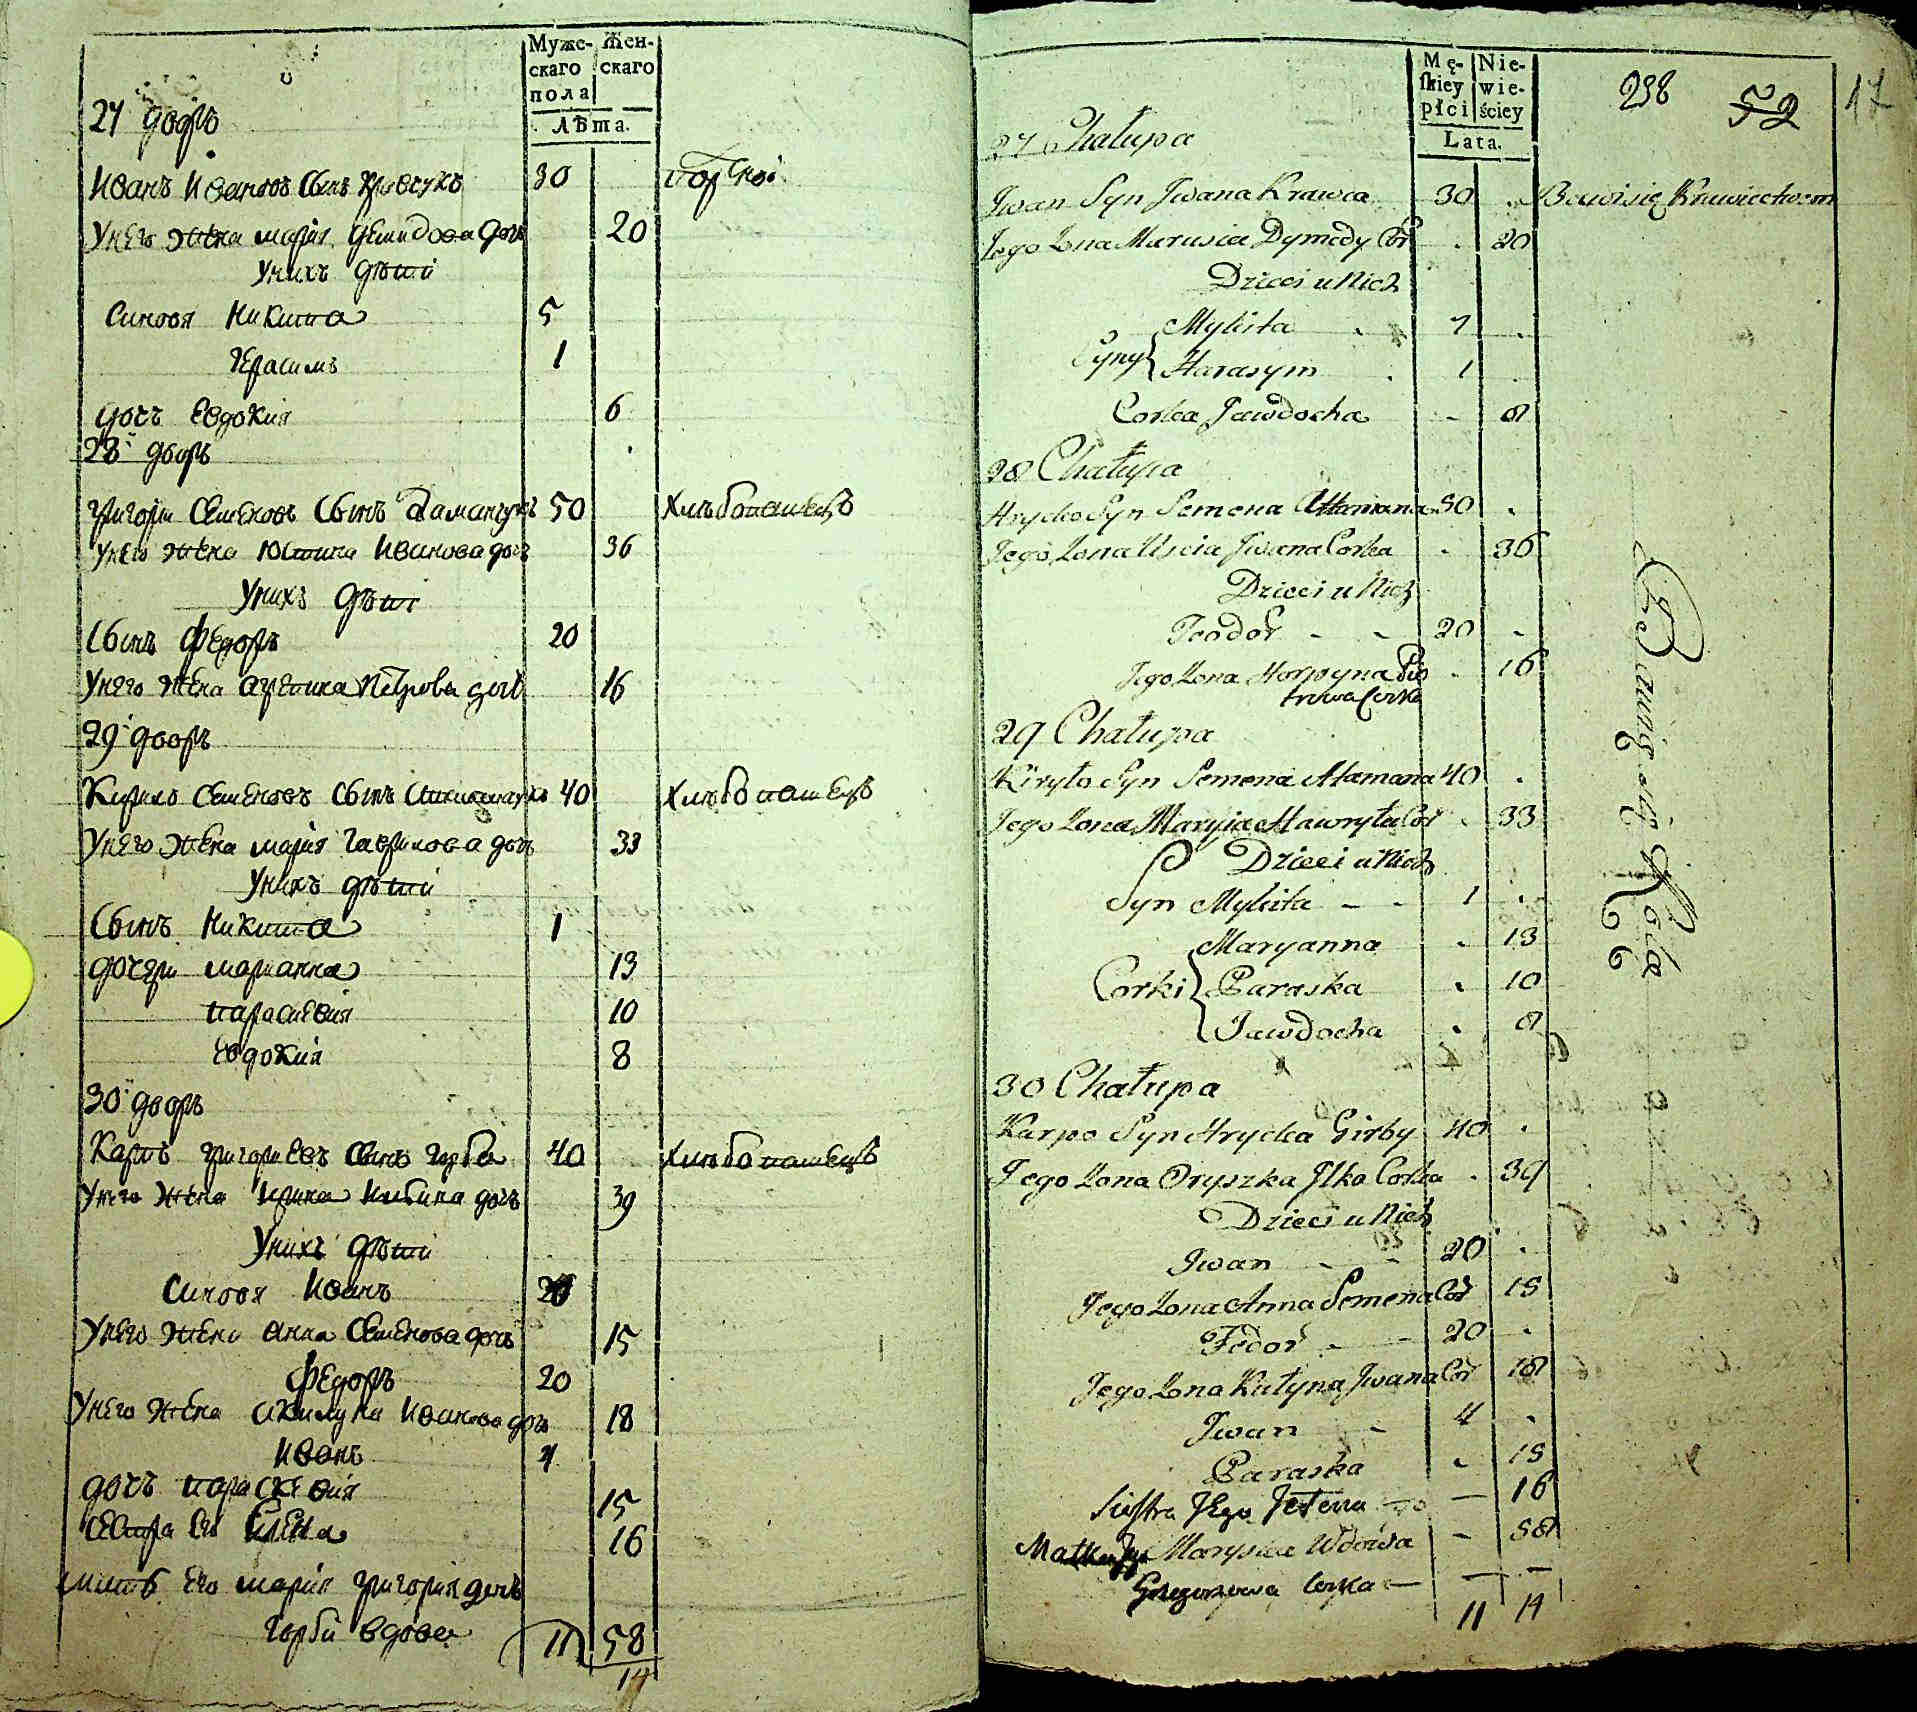 Муже-
скаго
пола
Жен-
скаго
Лѣта.
27 дворъ
Иванъ Ивановъ сынъ Кравчукъ 30 портной
У него жена Мария Демидова дочь 20
У нихъ дѣти
Синовя Никита 5
Герасимъ 1
дочь Евдокия 6
28 дворъ
Григори Семеновъ сынъ 50 хлѣбопашецъ
У него жена Юстина Иванова дочь 36
У нихъ дѣти
Сынъ Федоръ 20
У него жена Агрепина Петрова дочь 16
29 дворъ
Кирило Семеновъ сынъ 40 хлѣбопашецъ
У него жена Мария Гаврилова дочь 33
У нихъ дѣти
Сынъ Никита 1
дочери Марианна 13
Параскевия 10
Евдокия 8
30 дворъ
Карпъ Григориевъ сынъ Горба 40 хлѣбопашецъ
У него жена Ирина дочь 39
У нихъ дѣти
Синовя Иванъ 20
У него жена Анна Семенова дочь 15
Федоръ 20
У него жена Иванова дочь 18
Иванъ 4
дочь Параскевия 15
Сестра его Елена 16
Мать его Мария Григория дочь
Горби вдова 11 58
14
Mę-
skiey
płci
Nie-
wie-
ściey
Lata.
238 52 17
27 Chałupa
Jwan Syn Jwana Krawca 30 . Bawi się Krawiectwem
Jego Zona Marusia Dymedy Cor . 20
Dzieci u Nich
Mykita . 7 .
Syny Harasym . 1 .
Corka Jawdocha - 8
28 Chałupa
Hrycko Syn Semena Attamana 50 .
Jego Zona Uscia Jwana Corka . 36
Dzieci u Nich
Teodor - - 20 -
Jego Zona Horpyna Pio . 16
trowa Corka
29 Chałupa
Kiryło Syn Semena Atamana 40 .
Jego Zona Maryia Hawryła Cor . 33
Dzieci u Nich
Syn Mykita - - 1 .
Maryanna . 13
Corki Paraska . 10
Jawdocha . 8
30 Chałupa
Karpo Syn Hrycka Girby 40 .
Jego Zona Oryszka Jlka Corka . 39
Dzieci u Nich
Jwan - - 20 .
Jego Zona Anna Semena Cor 15
Fedor - - 20 .
Jego Zona Katyna Jwana Cor 18
Jwan - 4 .
Paraska . 15
Siostra Jego Jełena - 16
Matka Jego Maryska Wdowa - 58
Grzegorzowa Corka - - -
11 14
Bawią się Rolą